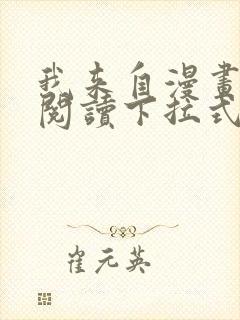 我来自漫畫
閱讀下拉式
崔元英